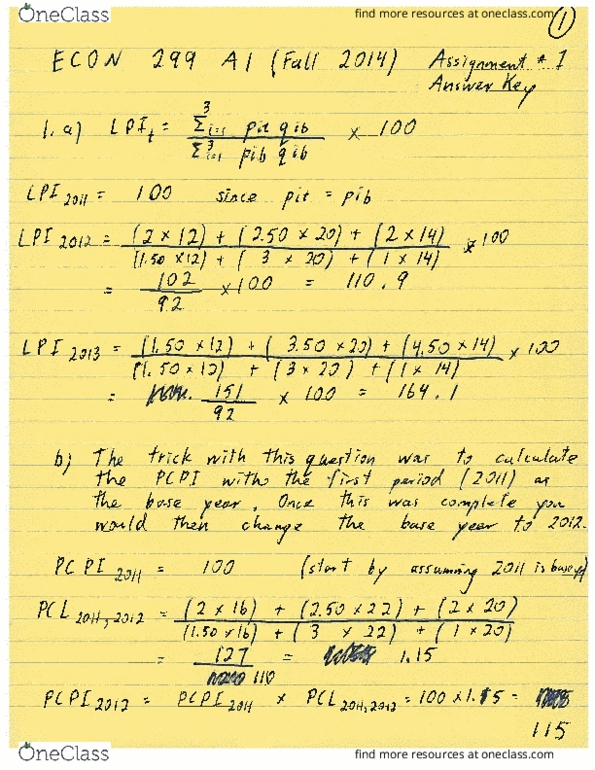 OneClass
find more resources at oneclass.com
1
ECON 299 A1 (Fall 2014) Assignment # 1
Answer Key
1. a) LPIt = Σ³i=1 pit qib / Σ³i=1 pib qib × 100
LPI 2011 = 100 since pit = pib
LPI 2012 = (2 × 12) + (2.50 × 20) + (2 × 14) / (1.50 × 12) + (3 × 20) + (1 × 14) × 100
= 102 / 92 × 100 = 110.9
LPI 2013 = (1.50 × 12) + (3.50 × 20) + (4.50 × 14) / (1.50 × 12) + (3 × 20) + (1 × 14) × 100
= 151 / 92 × 100 = 164.1
b) The trick with this question was to calculate
the PCPI with the first period (2011) as
the base year. Once this was complete you
would then change the base year to 2012.
PCPI 2011 = 100 (start by assuming 2011 is base yr)
PCL 2011, 2012 = (2 × 16) + (2.50 × 22) + (2 × 20) / (1.50 × 16) + (3 × 22) + (1 × 20)
= 127 / 110 = 1.15
PCPI 2012 = PCPI 2011 × PCL 2011, 2012 = 100 × 1.15 =
115
OneClass
find more resources at oneclass.com